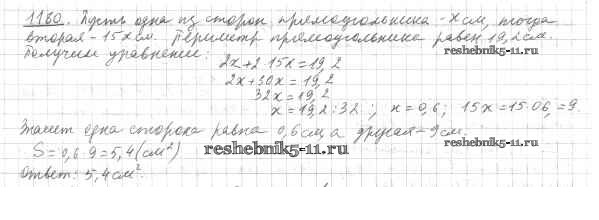 1180. Пусть одна из сторон прямоугольника - x см, тогда
вторая - 15x см. Периметр прямоугольника равен 19,2 см.
Получим уравнение:
reshebnik5-11.ru
2x+2·15x=19,2
2x+30x=19,2
32x=19,2
x=19,2:32 ; x=0,6; 15x=15·0,6=9.
Значит одна сторона равна 0,6 см, а другая - 9 см.
S=0,6·9=5,4 (см²)
reshebnik5-11.ru
reshebnik5-11.ru
Ответ: 5,4 см².